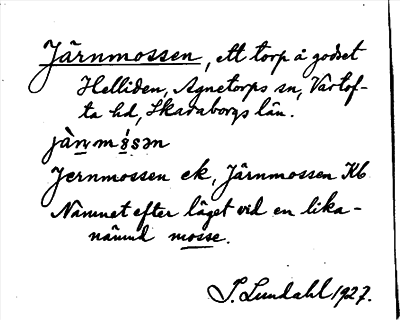 Järnmossen, ett torp å godset
Helliden, Agnetorps sn, Vartof-
ta hd, Skaraborgs län.
Jernmossen ek, Järnmossen Kb
Namnet efter läget vid en lika-
nämnd mosse.
S. Lundahl 1927.